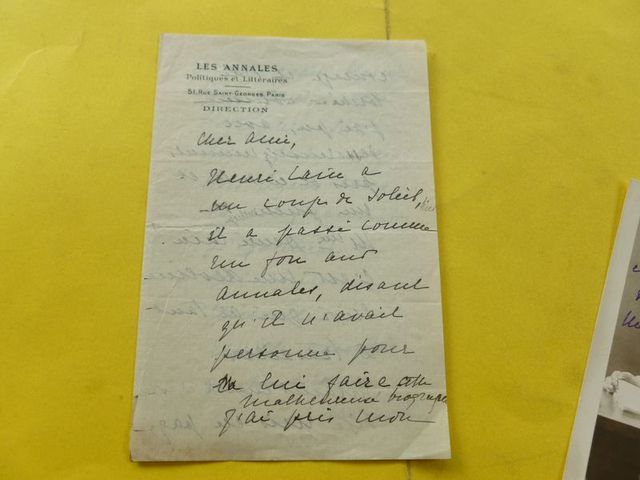 LES ANNALES
Politiques et Littéraires
51, Rue Saint-Georges, Paris
DIRECTION
Cher ami,
Henri a
un coup de soleil,
il a passé comme
un fou aux
annales, disant
qu'il n'avait
personne pour
lui faire cette
malheureuse biographie
J'ai pris mon